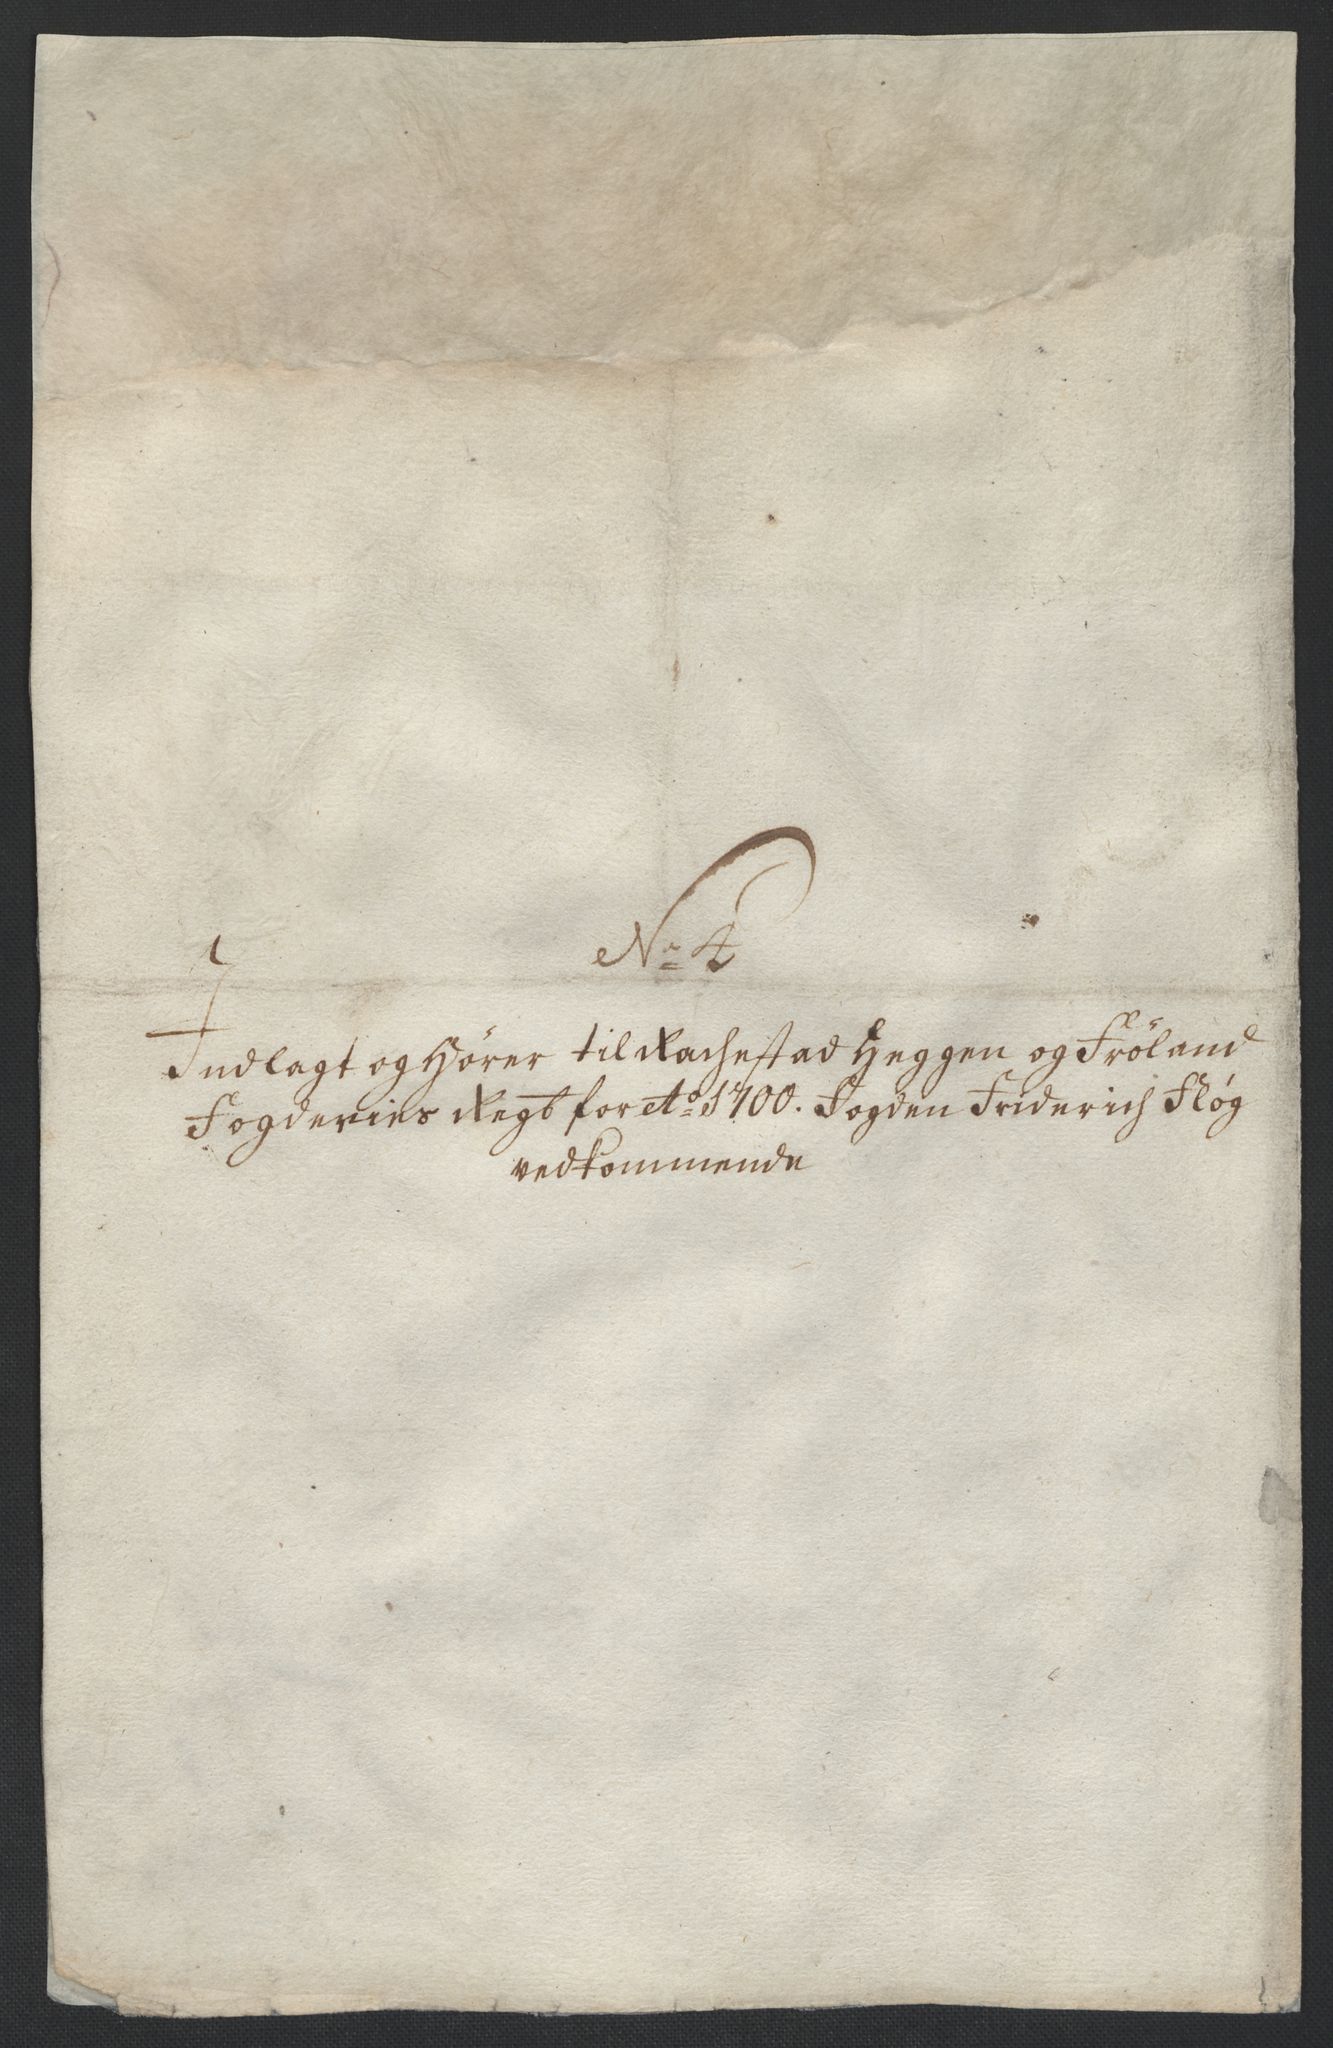 No 4
Indlagt og Hører til Rachestad Heggen og Fröland
Fogderies Regb for Ao 1700. Fogden Friderich Fløg
vedkommende